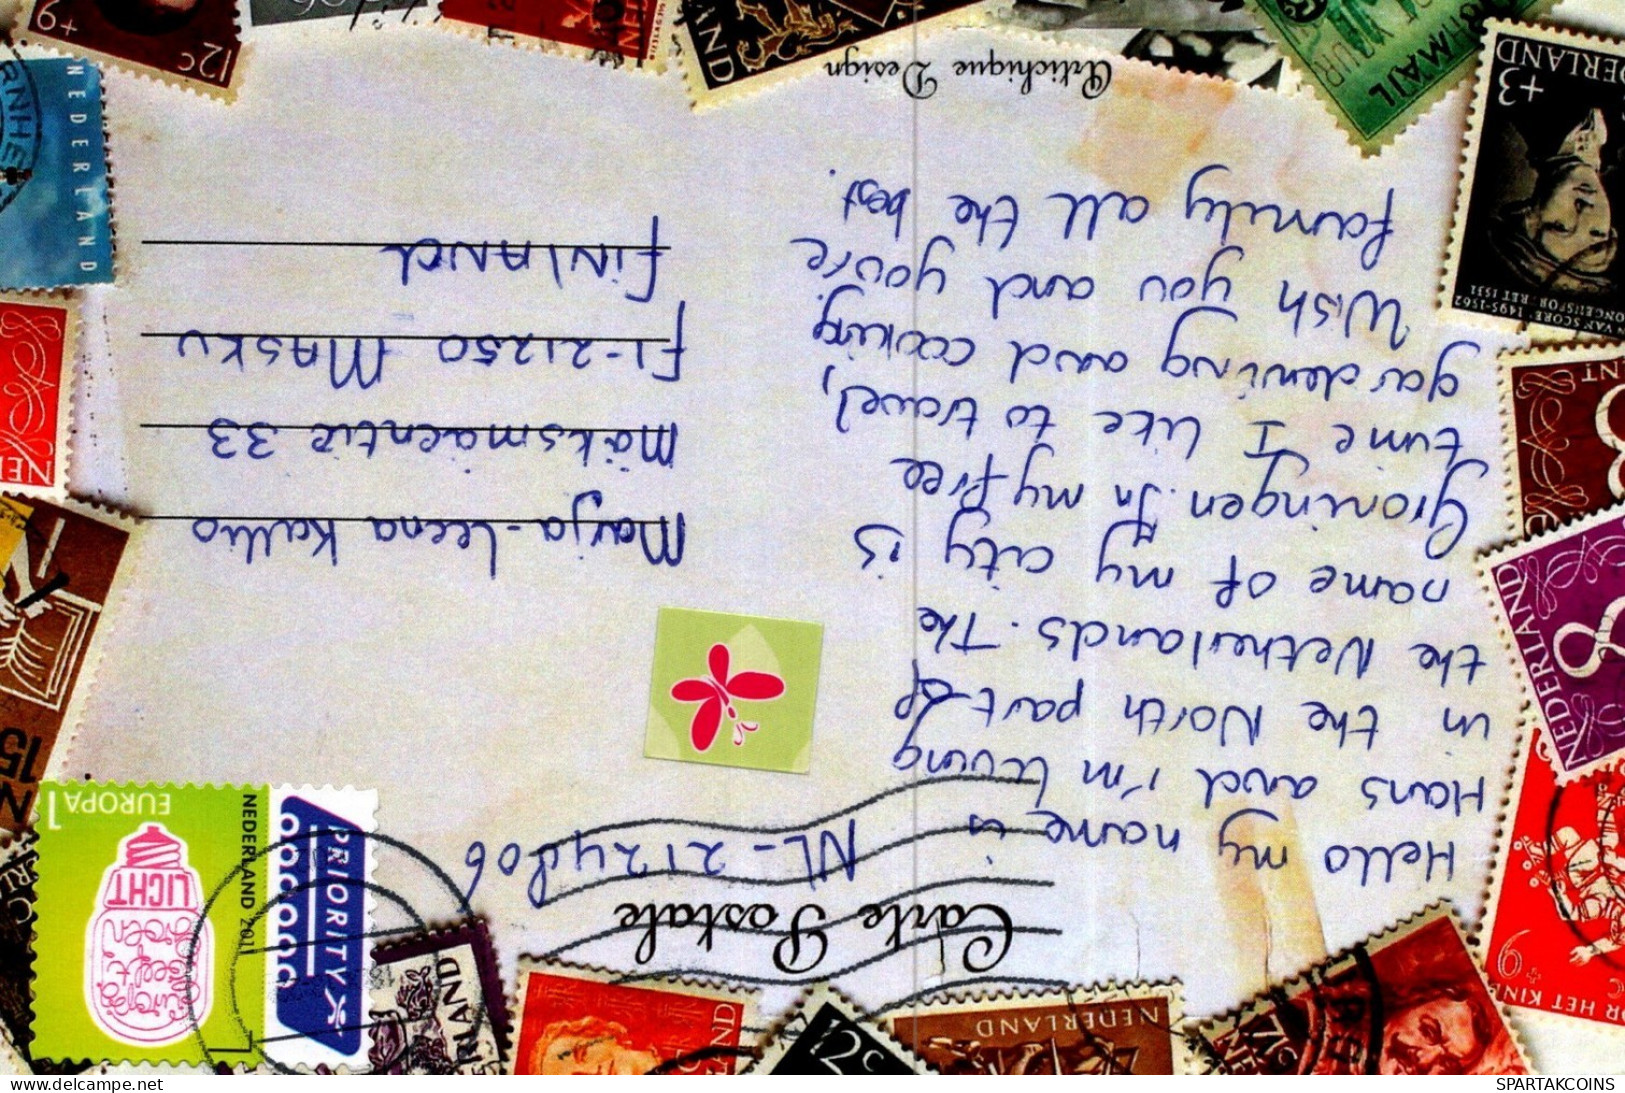 Carte Postale
NL-2124806
Hello my name is
Hans and I'm living
in the North part of
the Netherlands. The
name of my city is
Groningen. In my free
time I like to travel,
gardening and cooking.
Wish you and you're
family all the best.
Marja-Leena Kallio
Mäksmäentie 33
FI-21250 MASKU
FINLAND
Artichique Design
EUROPA 1
LICHT
NEDERLAND 2011
PRIORITY
NEDERLAND
12c
+9
NEDERLAND
15
NEDERLAND
8
NEDERLAND
+3
NEDERLAND
12c
6+
VOOR HET KIND
VAN SCOREL 1495-1562
1531
https://www.delcampe.net
SPARTAKCOINS